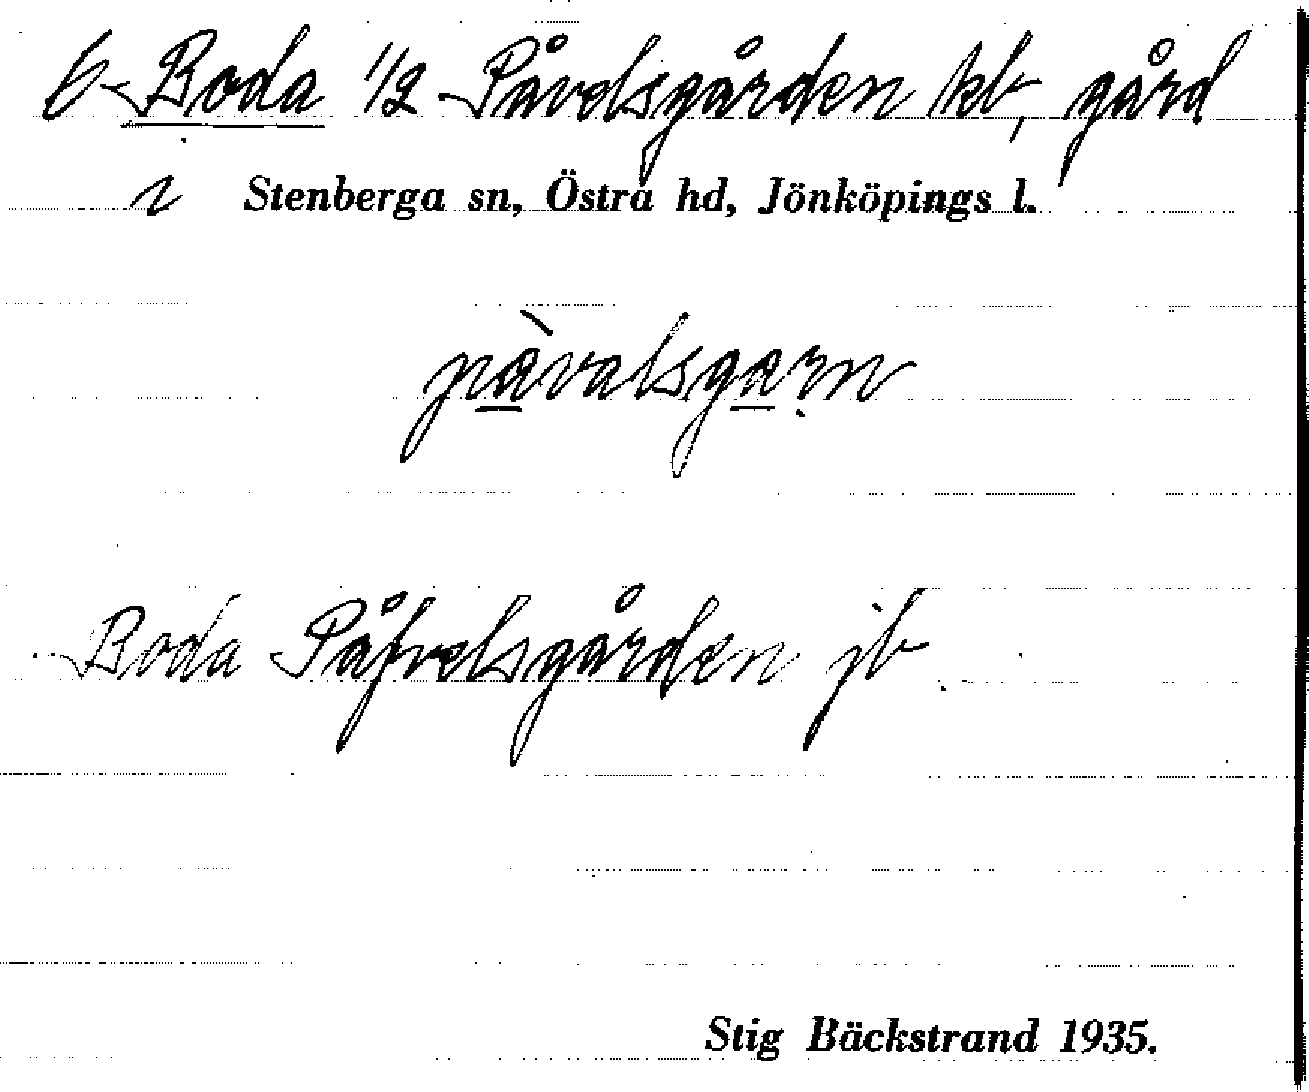 t Boda 1/2 Påvelsgården kb, gård
i Stenberga sn, Östra hd, Jönköpings l.
pàvalsgarn
Boda Påfvelsgården jb
Stig Bäckstrand 1935.